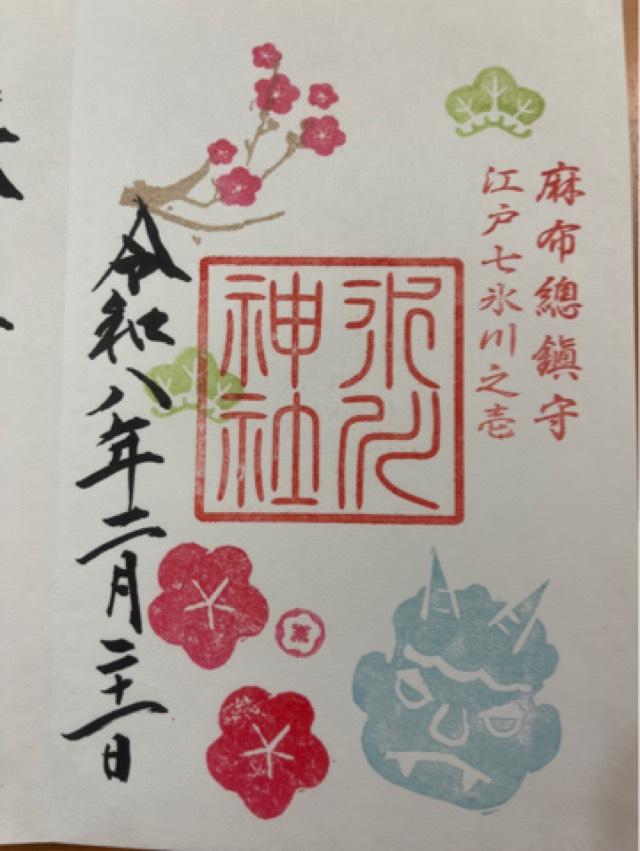 麻布總鎭守
江戸七氷川之壱
氷川
神社
令和八年二月二十一日